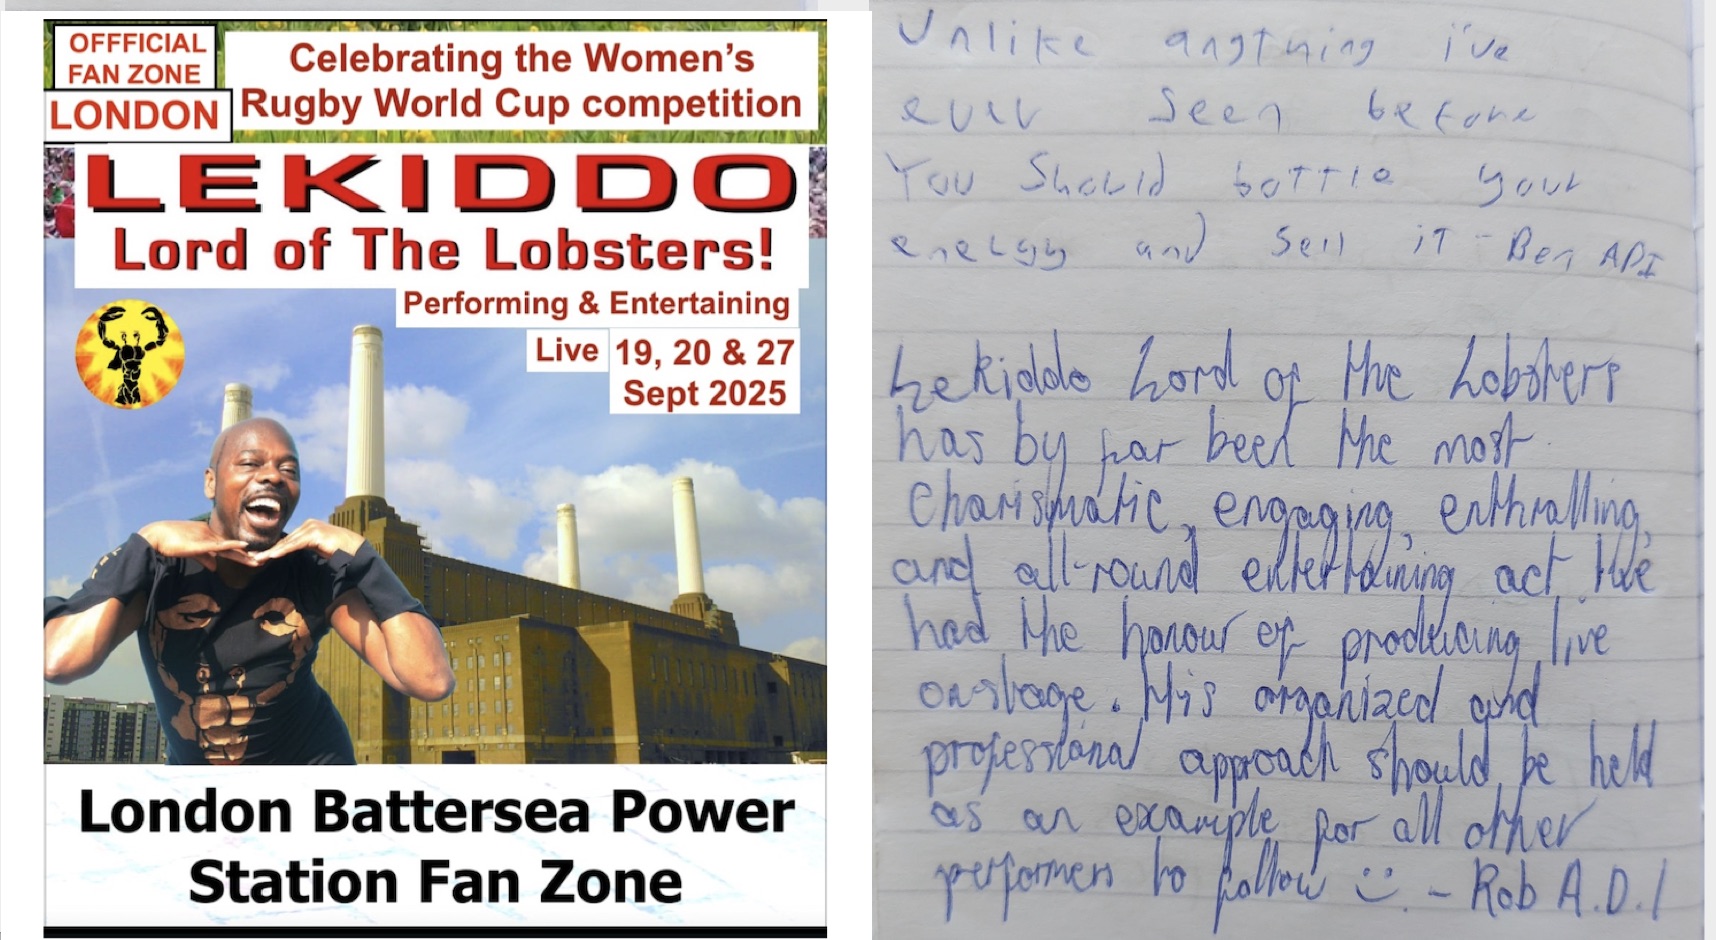 OFFFICIAL
FAN ZONE
LONDON
Celebrating the Women's
Rugby World Cup competition
LEKIDDO
Lord of The Lobsters!
Performing & Entertaining
Live 19, 20 & 27
Sept 2025
London Battersea Power
Station Fan Zone
Unlike angthing i've
ever seen before
You Should bottle your
energy and sell it - Ben API
Lekiddo Lord of the Lobsters
has by far been the most
charismatic, engaging, enthralling,
and all-round entertaining act I've
had the honour of producing live
onstage. His organized and
professional approach should be held
as an example for all other
performers to follow :) - Rob A.D.I